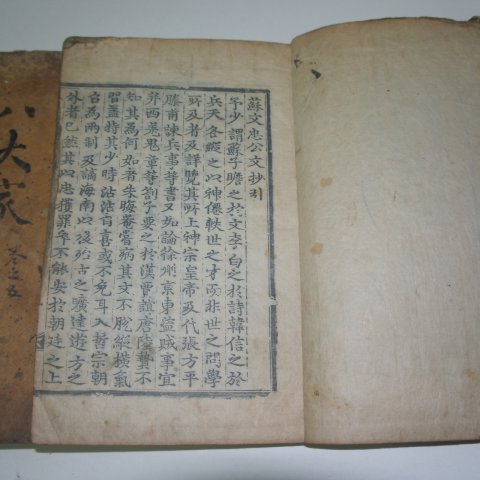 蘇文忠公文抄引
予少謂蘇子瞻之扵文李白之扵詩韓信之扵
兵天各縱之以神僊軼世之才而非世之問學
所及者及詳覽其所上神宗皇帝及代張方平
滕甫諫兵事等書又如論徐州京東盜賊事宜
并西羌鬼章等劄子要之扵漢賈誼唐陸贄不
知其爲何如者朱晦菴嘗病其文不脫縱橫氣
習盖特其少時沾沾自喜或不免耳入哲宗朝
召爲兩制及謫海南以後殆古之曠達遊方之
外者已然其以忠獲罪卒不能安扵朝廷之上
八大家
卷之五